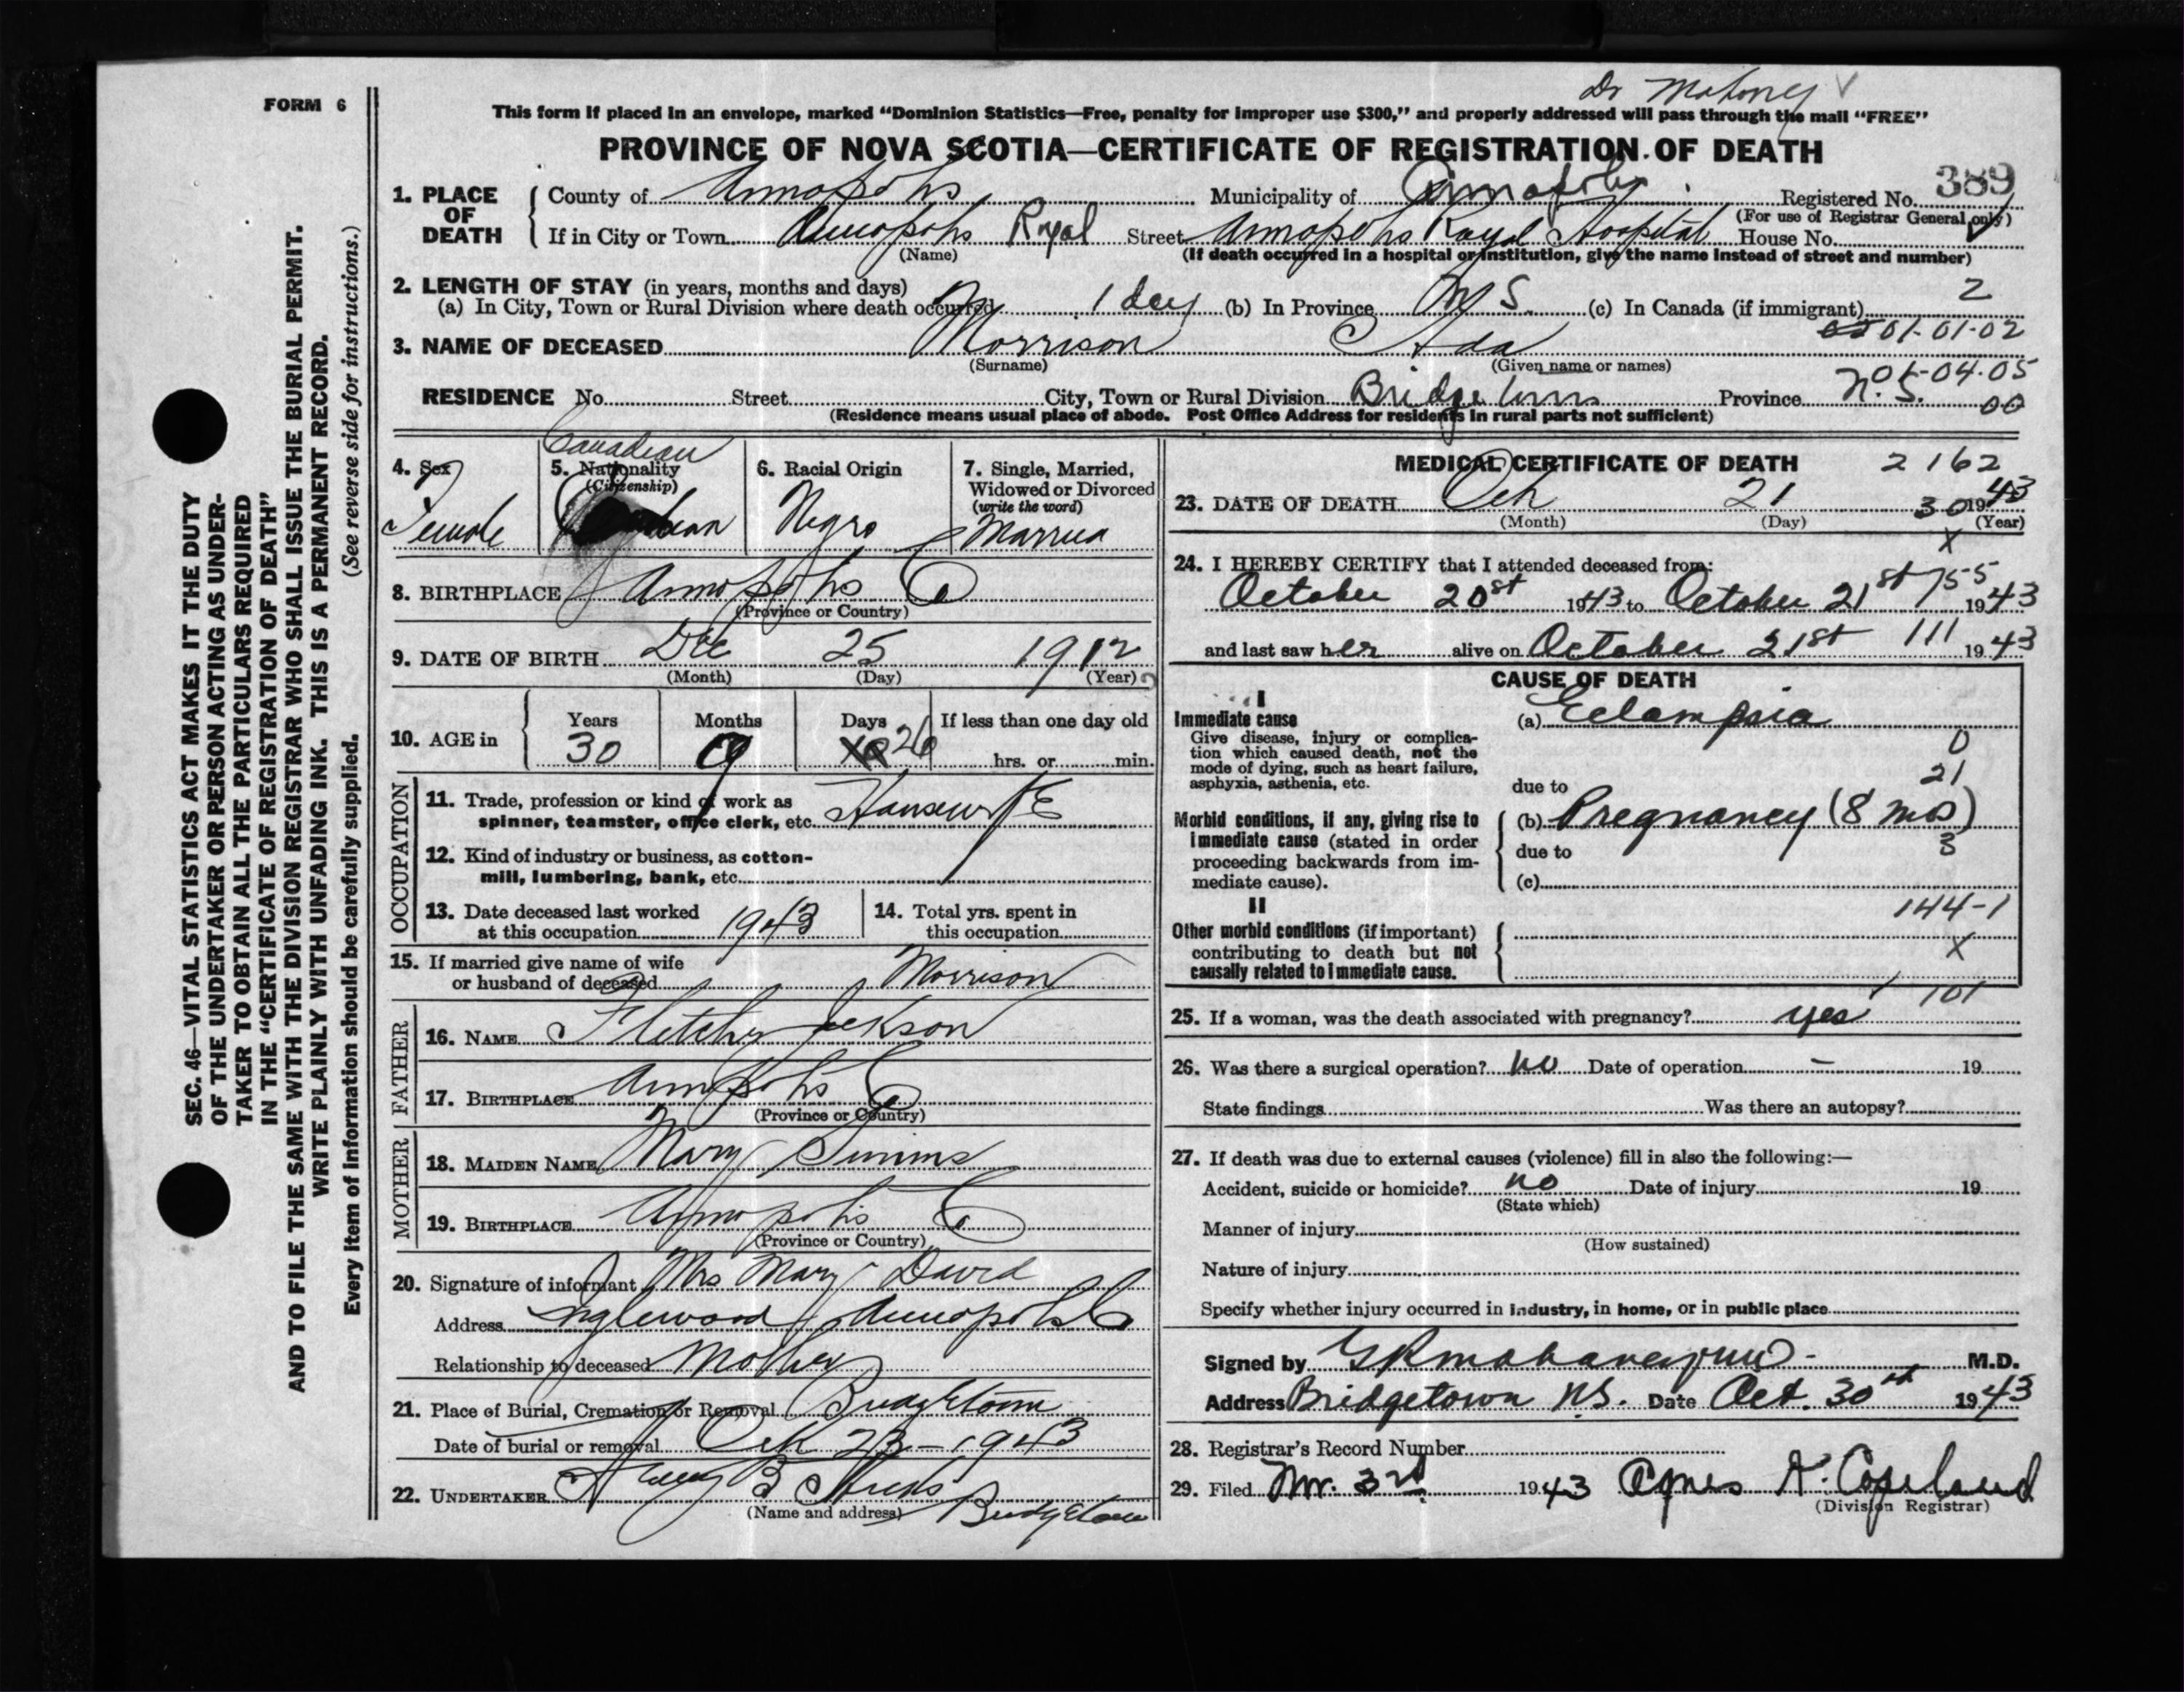 Dr Mahoney
FORM 6
This form if placed in an envelope, marked “Dominion Statistics—Free, penalty for improper use $300,” and properly addressed will pass through the mail “FREE”
PROVINCE OF NOVA SCOTIA—CERTIFICATE OF REGISTRATION OF DEATH
389
1. PLACE OF DEATH { County of Annapolis Municipality of Annapolis Registered No.
(For use of Registrar General only)
If in City or Town Annapolis Royal Street Annapolis Royal Hospital House No.
(Name) (If death occurred in a hospital or institution, give the name instead of street and number)
2. LENGTH OF STAY (in years, months and days) 2
(a) In City, Town or Rural Division where death occurred 1 day (b) In Province N S. (c) In Canada (if immigrant)
01-01-02
3. NAME OF DECEASED Morrison Ada
(Surname) (Given name or names)
01-04-05
RESIDENCE No. Street City, Town or Rural Division Bridgetown Province N.S. 00
(Residence means usual place of abode. Post Office Address for residents in rural parts not sufficient)
Canadian
4. Sex 5. Nationality (Citizenship) 6. Racial Origin 7. Single, Married, Widowed or Divorced (write the word)
Female Negro Married
8. BIRTHPLACE Annapolis Co
(Province or Country)
9. DATE OF BIRTH Dec 25 1912
(Month) (Day) (Year)
10. AGE in { Years Months Days If less than one day old
30 9 26 hrs. or min.
OCCUPATION
11. Trade, profession or kind of work as
spinner, teamster, office clerk, etc. Housewife
12. Kind of industry or business, as cotton-
mill, lumbering, bank, etc.
13. Date deceased last worked
at this occupation 1943
14. Total yrs. spent in
this occupation
15. If married give name of wife
or husband of deceased Morrison
FATHER
16. NAME Fletcher Jackson
17. BIRTHPLACE Annapolis Co
(Province or Country)
MOTHER
18. MAIDEN NAME Mary Simms
19. BIRTHPLACE Annapolis Co
(Province or Country)
20. Signature of informant Mrs Mary David
Address Inglewood Annapolis Co
Relationship to deceased Mother
21. Place of Burial, Cremation or Removal Bridgetown
Date of burial or removal Oct 23-1943
22. UNDERTAKER B Hicks Bridgetown
(Name and address)
MEDICAL CERTIFICATE OF DEATH 2162
23. DATE OF DEATH Oct 21 1943
30
(Month) (Day) (Year)
X
24. I HEREBY CERTIFY that I attended deceased from:
755
October 20st 1943 to October 21st 1943
and last saw her alive on October 21st 111 1943
CAUSE OF DEATH
I
Immediate cause (a) Eclampsia
Give disease, injury or complica-
tion which caused death, not the
mode of dying, such as heart failure,
asphyxia, asthenia, etc.
0
21
due to
Morbid conditions, if any, giving rise to
immediate cause (stated in order
proceeding backwards from im-
mediate cause).
(b) Pregnancy (8 mos)
due to 3
(c)
II
144-1
Other morbid conditions (if important)
contributing to death but not
causally related to immediate cause.
X
101
25. If a woman, was the death associated with pregnancy? yes
26. Was there a surgical operation? no Date of operation – 19
State findings Was there an autopsy?
27. If death was due to external causes (violence) fill in also the following:—
Accident, suicide or homicide? no Date of injury 19
(State which)
Manner of injury
(How sustained)
Nature of injury
Specify whether injury occurred in industry, in home, or in public place
Signed by M.D.
Address Bridgetown N.S. Date Oct. 30th 1943
28. Registrar’s Record Number
29. Filed Nov. 3rd 1943 Agnes K. Copeland
(Division Registrar)
SEC. 46—VITAL STATISTICS ACT MAKES IT THE DUTY
OF THE UNDERTAKER OR PERSON ACTING AS UNDER-
TAKER TO OBTAIN ALL THE PARTICULARS REQUIRED
IN THE “CERTIFICATE OF REGISTRATION OF DEATH”
AND TO FILE THE SAME WITH THE DIVISION REGISTRAR WHO SHALL ISSUE THE BURIAL PERMIT.
WRITE PLAINLY WITH UNFADING INK. THIS IS A PERMANENT RECORD.
Every item of information should be carefully supplied. (See reverse side for instructions.)